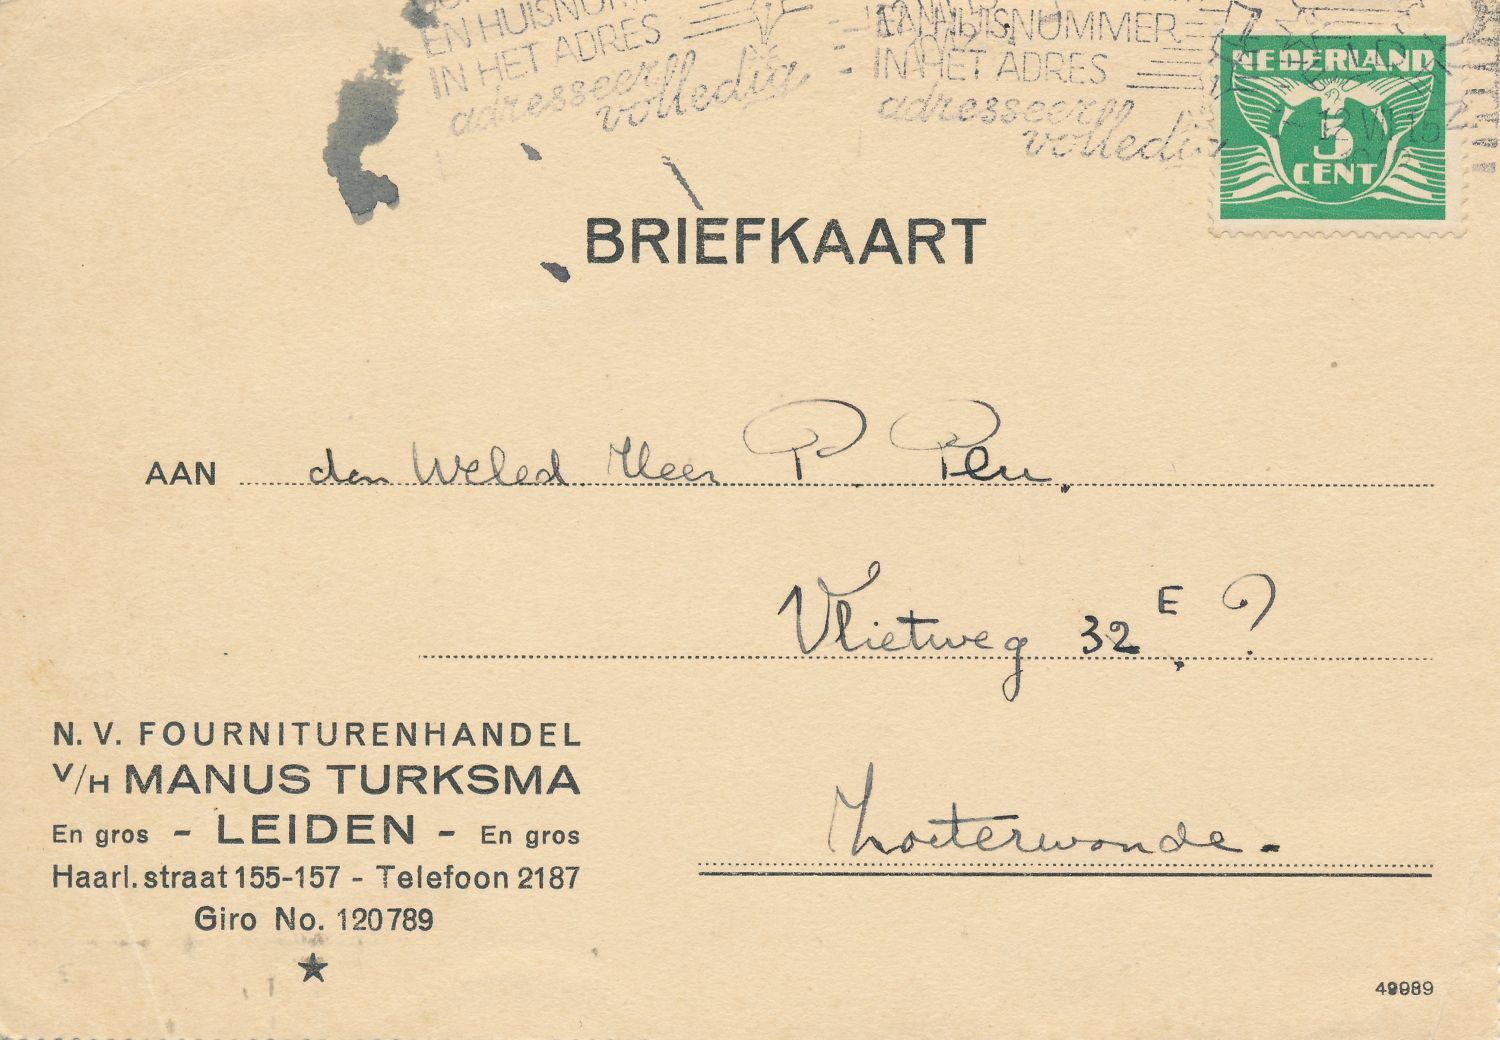 EN HUISNUM
IN HET ADRES
adresseer
volledig
HUISNUMMER
IN HET ADRES
adresseer
volledig
NEDERLAND
12 VII 15
CENT
BRIEFKAART
AAN den WelEd. Heer P. Peu.
Vlietweg 32 E. ?
Zoeterwoude.
N.V. FOURNITURENHANDEL
V/H MANUS TURKSMA
En gros - LEIDEN - En gros
Haarl. straat 155-157 - Telefoon 2187
Giro No. 120789
49989